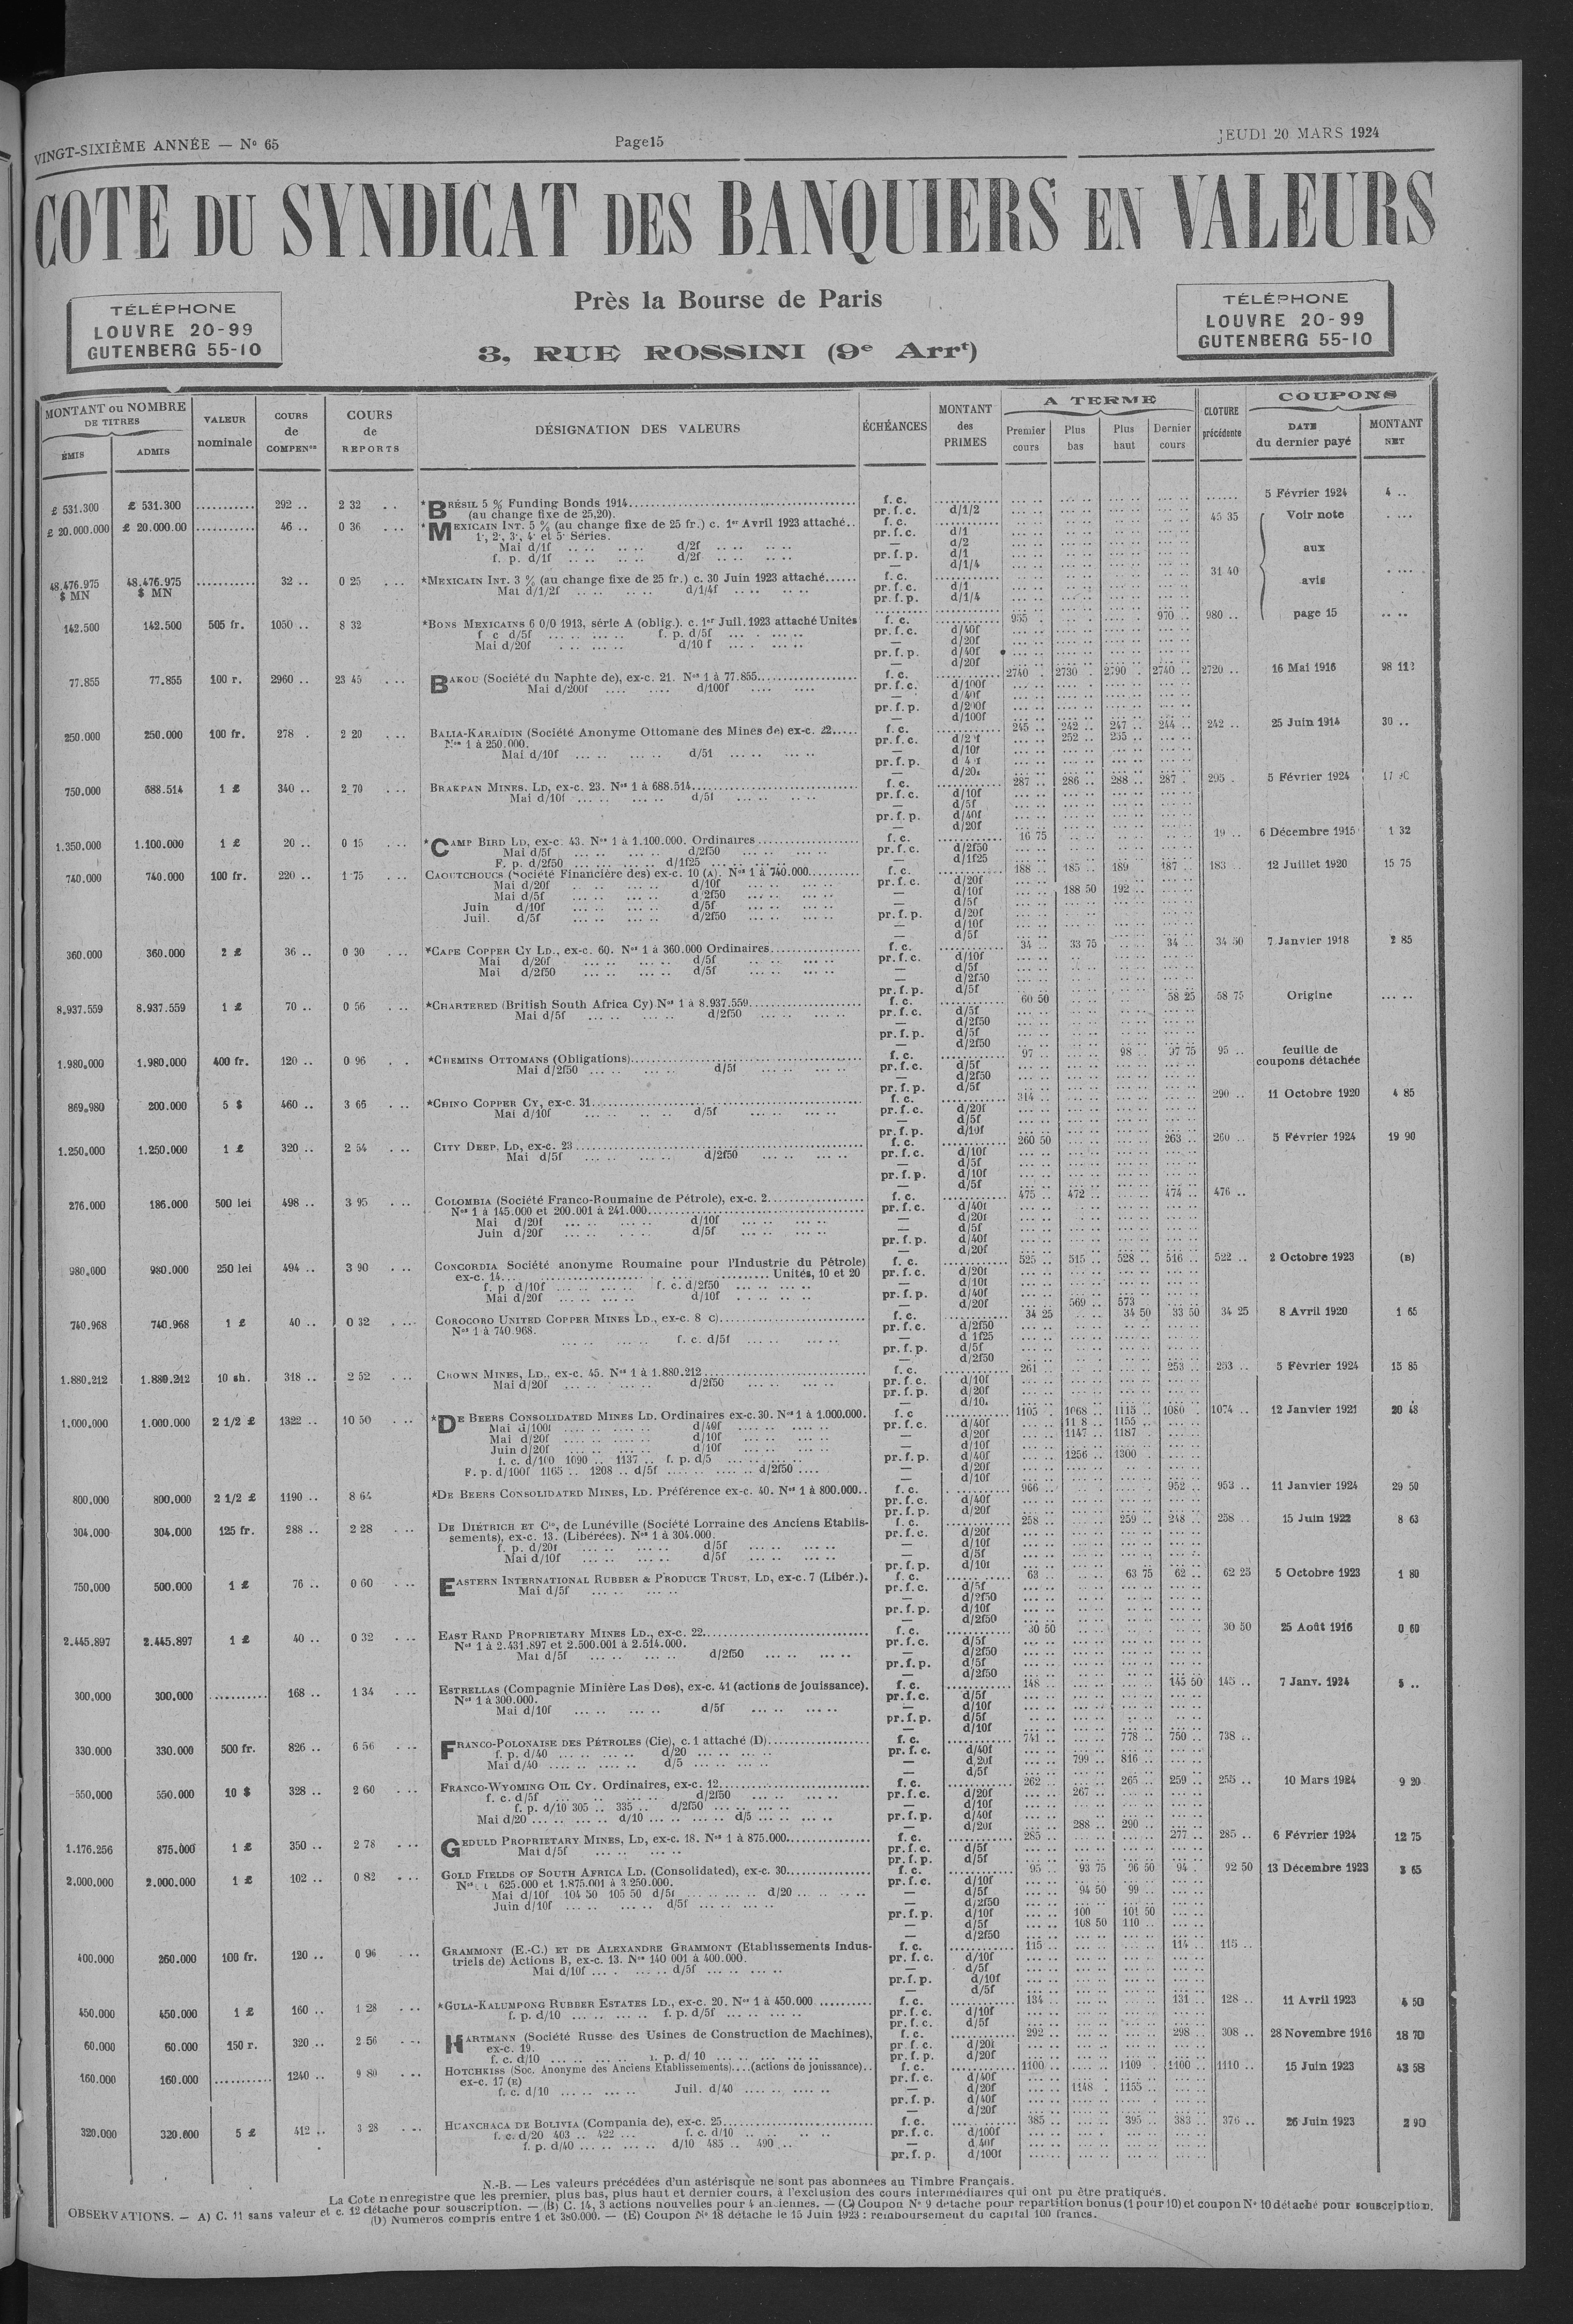 VINGT-SIXIÈME ANNÉE — Nº 65
Page15
JEUDI 20 MARS 1924
COTE DU SYNDICAT DES BANQUIERS EN VALEURS
TÉLÉPHONE
LOUVRE 20-99
GUTENBERG 55-10
Près la Bourse de Paris
3, RUE ROSSINI (9e Arrt)
TÉLÉPHONE
LOUVRE 20-99
GUTENBERG 55-10
MONTANT ou NOMBRE DE TITRES
ÉMIS
ADMIS
VALEUR nominale
COURS de COMPENon
COURS de REPORTS
DÉSIGNATION DES VALEURS
ÉCHÉANCES
MONTANT des PRIMES
A TERME
Premier cours
Plus bas
Plus haut
Dernier cours
CLOTURE précédente
COUPONS
DATE du dernier payé
MONTANT NET
£ 531.300 £ 531.300 292 .. 2 32 *BRÉSIL 5 % Funding Bonds 1914 f. c. 5 Février 1924 4 ..
(au change fixe de 25,20). pr. f. c. d/1/2
£ 20.000.000 £ 20.000.00 46 .. 0 36 *MEXICAIN INT. 5 % (au change fixe de 25 fr.) c. 1er Avril 1923 attaché.. f. c. 45 35 Voir note
1e, 2e, 3e, 4e et 5e Séries. pr. f. c. d/1
Mai d/1f d/2f — d/2
f. p. d/1f d/2f pr. f. p. d/1 aux
— d/1/4
48.476.975 $ MN 48.476.975 $ MN 32 .. 0 25 *MEXICAIN INT. 3 % (au change fixe de 25 fr.) c. 30 Juin 1923 attaché...... f. c. 31 40 avis
Mai d/1/2f d/1/4f pr. f. c. d/1
pr. f. p. d/1/4
142.500 142.500 505 fr. 1050 .. 8 32 *BONS MEXICAINS 6 0/0 1913, série A (oblig.). c. 1er Juil. 1923 attaché Unités f. c. 955 970 .. 980 .. page 15
f c d/5f f. p. d/5f pr. f. c. d/40f
Mai d/20f d/10 f — d/20f
pr. f. p. d/40f
— d/20f
77.855 77.855 100 r. 2960 .. 23 45 BAKOU (Société du Naphte de), ex-c. 21. Nos 1 à 77.855 f. c. 2740 2730 2790 2740 2720 .. 16 Mai 1916 98 112
Mai d/200f d/100f pr. f. c. d/100f
— d/40f
pr. f. p. d/200f
— d/100f
250.000 250.000 100 fr. 278 . 2 20 BALIA-KARAÏDIN (Société Anonyme Ottomane des Mines de) ex-c. 22..... f. c. 245 242 247 244 242 .. 25 Juin 1914 30 ..
Nos 1 à 250.000. pr. f. c. 252 .. 255
Mai d/10f d/51 — d/10f
pr. f. p.
— d/20
750.000 688.514 1 £ 340 .. 2 70 BRAKPAN MINES, LD, ex-c. 23. Nos 1 à 688.514 f. c. 287 286 288 287 295 . 5 Février 1924
Mai d/10f d/5f pr. f. c. d/10f
— d/5f
pr. f. p. d/40f
— d/20f
1.350.000 1.100.000 1 £ 20 .. 0 15 *CAMP BIRD LD, ex-c. 43. Nos 1 à 1.100.000. Ordinaires f. c. 16 75 19 .. 6 Décembre 1915 1 32
Mai d/5f d/2f50 pr. f. c. d/2f50
F. p. d/2f50 d/1f25 — d/1f25
740.000 740.000 100 fr. 220 .. 1 75 CAOUTCHOUCS (Société Financière des) ex-c. 10 (A). Nos 1 à 740.000 f. c. 188 185 189 187 183 12 Juillet 1920 15 75
Mai d/20f d/10f pr. f. c. d/20f
Mai d/5f d/2f50 — d/10f 188 50 192 ..
Juin d/10f d/5f — d/5f
Juil. d/5f d/2f50 pr. f. p. d/20f
— d/10f
— d/5f
360.000 360.000 2 £ 36 .. 0 30 *CAPE COPPER CY LD., ex-c. 60. Nos 1 à 360.000 Ordinaires f. c. 34 .. 33 75 34 .. 34 50 7 Janvier 1918 2 85
Mai d/20f d/5f pr. f. c. d/10f
Mai d/2f50 d/5f — d/5f
— d/2f50
pr. f. p. d/5f
8.937.559 8.937.559 1 £ 70 .. 0 56 *CHARTERED (British South Africa Cy) Nos 1 à 8.937.559 f. c. 60 50 58 25 58 75 Origine
Mai d/5f d/2f50 pr. f. c. d/5f
— d/2f50
pr. f. p. d/5f
— d/2f50
1.980.000 1.980.000 400 fr. 120 .. 0 96 *CHEMINS OTTOMANS (Obligations) f. c. 97 .. 98 .. 97 75 95 .. feuille de coupons détachée
Mai d/2f50 d/5f pr. f. c. d/5f
— d/2f50
pr. f. p. d/5f
869.980 200.000 5 $ 460 .. 3 65 *CHINO COPPER CY, ex-c. 31 f. c. 314 .. 290 .. 11 Octobre 1920 4 85
Mai d/10f d/5f pr. f. c. d/20f
— d/5f
pr. f. p. d/10f
1.250.000 1.250.000 1 £ 320 .. 2 54 CITY DEEP, LD, ex-c. 23 f. c. 260 50 263 .. 260 .. 5 Février 1924 19 90
Mai d/5f d/2f50 pr. f. c. d/10f
— d/5f
pr. f. p. d/10f
— d/5f
276.000 186.000 500 lei 498 .. 3 95 COLOMBIA (Société Franco-Roumaine de Pétrole), ex-c. 2 f. c. 475 .. 472 .. 474 .. 476 ..
Nos 1 à 145.000 et 200.001 à 241.000 pr. f. c. d/40f
Mai d/20f d/10f — d/20f
Juin d/20f d/5f — d/5f
pr. f. p. d/40f
— d/20f
980.000 980.000 250 lei 494 .. 3 90 CONCORDIA Société anonyme Roumaine pour l'Industrie du Pétrole) f. c. 525 515 528 516 522 .. 2 Octobre 1923 (B)
ex-c. 14 Unités, 10 et 20 pr. f. c. d/20f
f. p d/10f f. c. d/2f50 — d/10f
Mai d/20f d/10f pr. f. p. d/40f
— d/20f 569 .. 573
740.968 740.968 1 £ 40 .. 0 32 COROCORO UNITED COPPER MINES LD., ex-c. 8 C) f. c. 34 25 34 50 33 50 34 25 8 Avril 1920 1 65
Nos 1 à 740.968. pr. f. c. d/2f50
f. c. d/5f — d 1f25
pr. f. p. d/5f
— d/2f50
1.880.212 1.880.212 10 sh. 318 .. 2 52 CROWN MINES, LD., ex-c. 45. Nos 1 à 1.880.212 f. c. 261 253 .. 253 .. 5 Février 1924 15 85
Mai d/20f d/2f50 pr. f. c. d/10f
pr. f. p. d/20f
— d/10
1.000.000 1.000.000 2 1/2 £ 1322 .. 10 50 *DE BEERS CONSOLIDATED MINES LD. Ordinaires ex-c. 30. Nos 1 à 1.000.000. f. c 1105 1068 1115 1080 1074 .. 12 Janvier 1921 20 48
Mai d/100f d/40f pr. f. c. d/40f 1155
Mai d/20f d/10f — d/20f 1147 .. 1187
Juin d/20f d/10f — d/10f
f. c. d/100 1090 .. 1137 .. f. p. d/5 pr. f. p. d/40f 1256 .. 1300
F. p. d/100f 1165 .. 1208 .. d/5f d/2f50 — d/20f
— d/10f
800.000 800.000 2 1/2 £ 1190 .. 8 64 *DE BEERS CONSOLIDATED MINES, LD. Préférence ex-c. 40. Nos 1 à 800.000.. f. c. 966 952 .. 953 .. 11 Janvier 1924 29 50
pr. f. c. d/40f
pr. f. p. d/20f
304.000 304.000 125 fr. 288 .. 2 28 DE DIÉTRICH ET Cie, de Lunéville (Société Lorraine des Anciens Etablis- f. c. 258 .. 259 .. 248 .. 258 .. 15 Juin 1922 8 63
sements), ex-c. 13. (Libérées). Nos 1 à 304.000. pr. f. c. d/20f
f. p. d/20f d/5f — d/10f
Mai d/10f d/5f — d/5f
pr. f. p. d/10f
750.000 500.000 1 £ 76 .. 0 60 EASTERN INTERNATIONAL RUBBER & PRODUCE TRUST, LD, ex-c. 7 (Libér.). f. c. 63 .. 63 75 62 .. 62 25 5 Octobre 1923 1 80
Mai d/5f pr. f. c. d/5f
— d/2f50
pr. f. p. d/10f
— d/2f50
2.445.897 2.445.897 1 £ 40 .. 0 32 EAST RAND PROPRIETARY MINES LD., ex-c. 22 f. c. 30 50 30 50 25 Août 1916 0 60
Nos 1 à 2.431.897 et 2.500.001 à 2.514.000. pr. f. c. d/5f
Mai d/5f d/2f50 — d/2f50
pr. f. p. d/5f
— d/2f50
300.000 300.000 168 .. 1 34 ESTRELLAS (Compagnie Minière Las Dos), ex-c. 41 (actions de jouissance). f. c. 148 .. 145 50 145 .. 7 Janv. 1924 5 ..
Nos 1 à 300.000. pr. f. c. d/5f
Mai d/10f d/5f — d/10f
pr. f. p. d/5f
— d/10f
330.000 330.000 500 fr. 826 .. 6 56 FRANCO-POLONAISE DES PÉTROLES (Cie), c. 1 attaché (D) f. c. 741 .. 778 .. 750 .. 738 ..
f. p. d/40 d/20 pr. f. c. d/40f
Mai d/40 d/5 — d,20f 799 .. 816 ..
— d/5f
550.000 550.000 10 $ 328 .. 2 60 FRANCO-WYOMING OIL CY. Ordinaires, ex-c. 12 f. c. 262 .. 265 .. 259 .. 255 .. 10 Mars 1924 9 20
f. c. d/5f d/2f50 pr. f. c. d/20f 267 ..
f. p. d/10 305 .. 335 .. d/2f50 — d/10f
Mai d/20 d/10 d/5 pr. f. p. d/40f
— d/20f 288 .. 290 ..
1.176.256 875.000 1 £ 350 .. 2 78 GEDULD PROPRIETARY MINES, LD, ex-c. 18. Nos 1 à 875.000 f. c. 285 .. 277 .. 285 .. 6 Février 1924 12 75
Mai d/5f pr. f. c. d/5f
pr. f. p. d/5f
2.000.000 2.000.000 1 £ 102 .. 0 82 GOLD FIELDS OF SOUTH AFRICA LD. (Consolidated), ex-c. 30 f. c. 95 .. 93 75 96 50 94 . 92 50 13 Décembre 1923 3 65
625.000 et 1.875.001 à 3.250.000. pr. f. c. d/10f
Mai d/10f 104 50 105 50 d/5f d/20 — d/5f 94 50 99 ..
Juin d/10f d/5f — d/2f50
pr. f. p. d/10f 100 101 50
— d/5f 108 50 110 ..
— d/2f50
400.000 260.000 100 fr. 120 .. 0 96 GRAMMONT (E.-C.) ET DE ALEXANDRE GRAMMONT (Etablissements Indus- f. c. 115 .. 114 .. 115 ..
triels de) Actions B, ex-c. 13. Nos 140 001 à 400.000. pr. f. c. d/10f
Mai d/10f d/5f — d/5f
pr. f. p. d/10f
— d/5f
450.000 450.000 1 £ 160 .. 1 28 *GULA-KALUMPONG RUBBER ESTATES LD., ex-c. 20. Nos 1 à 450.000 f. c. 134 .. 131 .. 128 .. 11 Avril 1923 4 50
f. p. d/10 f. p. d/5f pr. f. c. d/10f
pr. f. c. d/5f
60.000 60.000 150 r. 320 .. 2 56 HARTMANN (Société Russe des Usines de Construction de Machines), f. c. 292 .. 298 .. 308 .. 28 Novembre 1916 18 70
ex-c. 19. pr. f. c. d/20f
f. c. d/10 p. d/ 10 pr. f. p. d/20f
160.000 160.000 1240 .. 9 80 HOTCHKISS (Soc. Anonyme des Anciens Etablissements)....(actions de jouissance).. f. c. 1100 1109 1100 1110 .. 15 Juin 1923 43 58
ex-c. 17 (E) pr. f. c. d/40f
f. c. d/10 Juil. d/40 — d/20f 1148 . 1155 ..
pr. f. p. d/40f
— d/20f
320.000 320.000 5 £ 412 .. 3 28 HUANCHACA DE BOLIVIA (Compania de), ex-c. 25 f. c. 385 .. 395 .. 383 .. 376 .. 26 Juin 1923 2 90
f. c. d/20 403 .. 422 ... f. c. d/10 pr. f. c. d/100f
f. p. d/40 d/10 485 .. 490 .. — d,40f
pr. f. p. d/100f
N.-B. — Les valeurs précédées d'un astérisque ne sont pas abonnées au Timbre Français.
La Cote n enregistre que les premier, plus bas, plus haut et dernier cours, à l'exclusion des cours intermédiaires qui ont pu être pratiqués.
OBSERVATIONS. — A) C. 11 sans valeur et c. 12 détaché pour souscription. — (B) C. 14, 3 actions nouvelles pour 4 anciennes. — (C) Coupon Nº 9 détaché pour répartition bonus (1 pour 10) et coupon Nº 10 détaché pour souscription.
(D) Numéros compris entre 1 et 380.000. — (E) Coupon Nº 18 détaché le 15 Juin 1923 : remboursement du capital 100 francs.